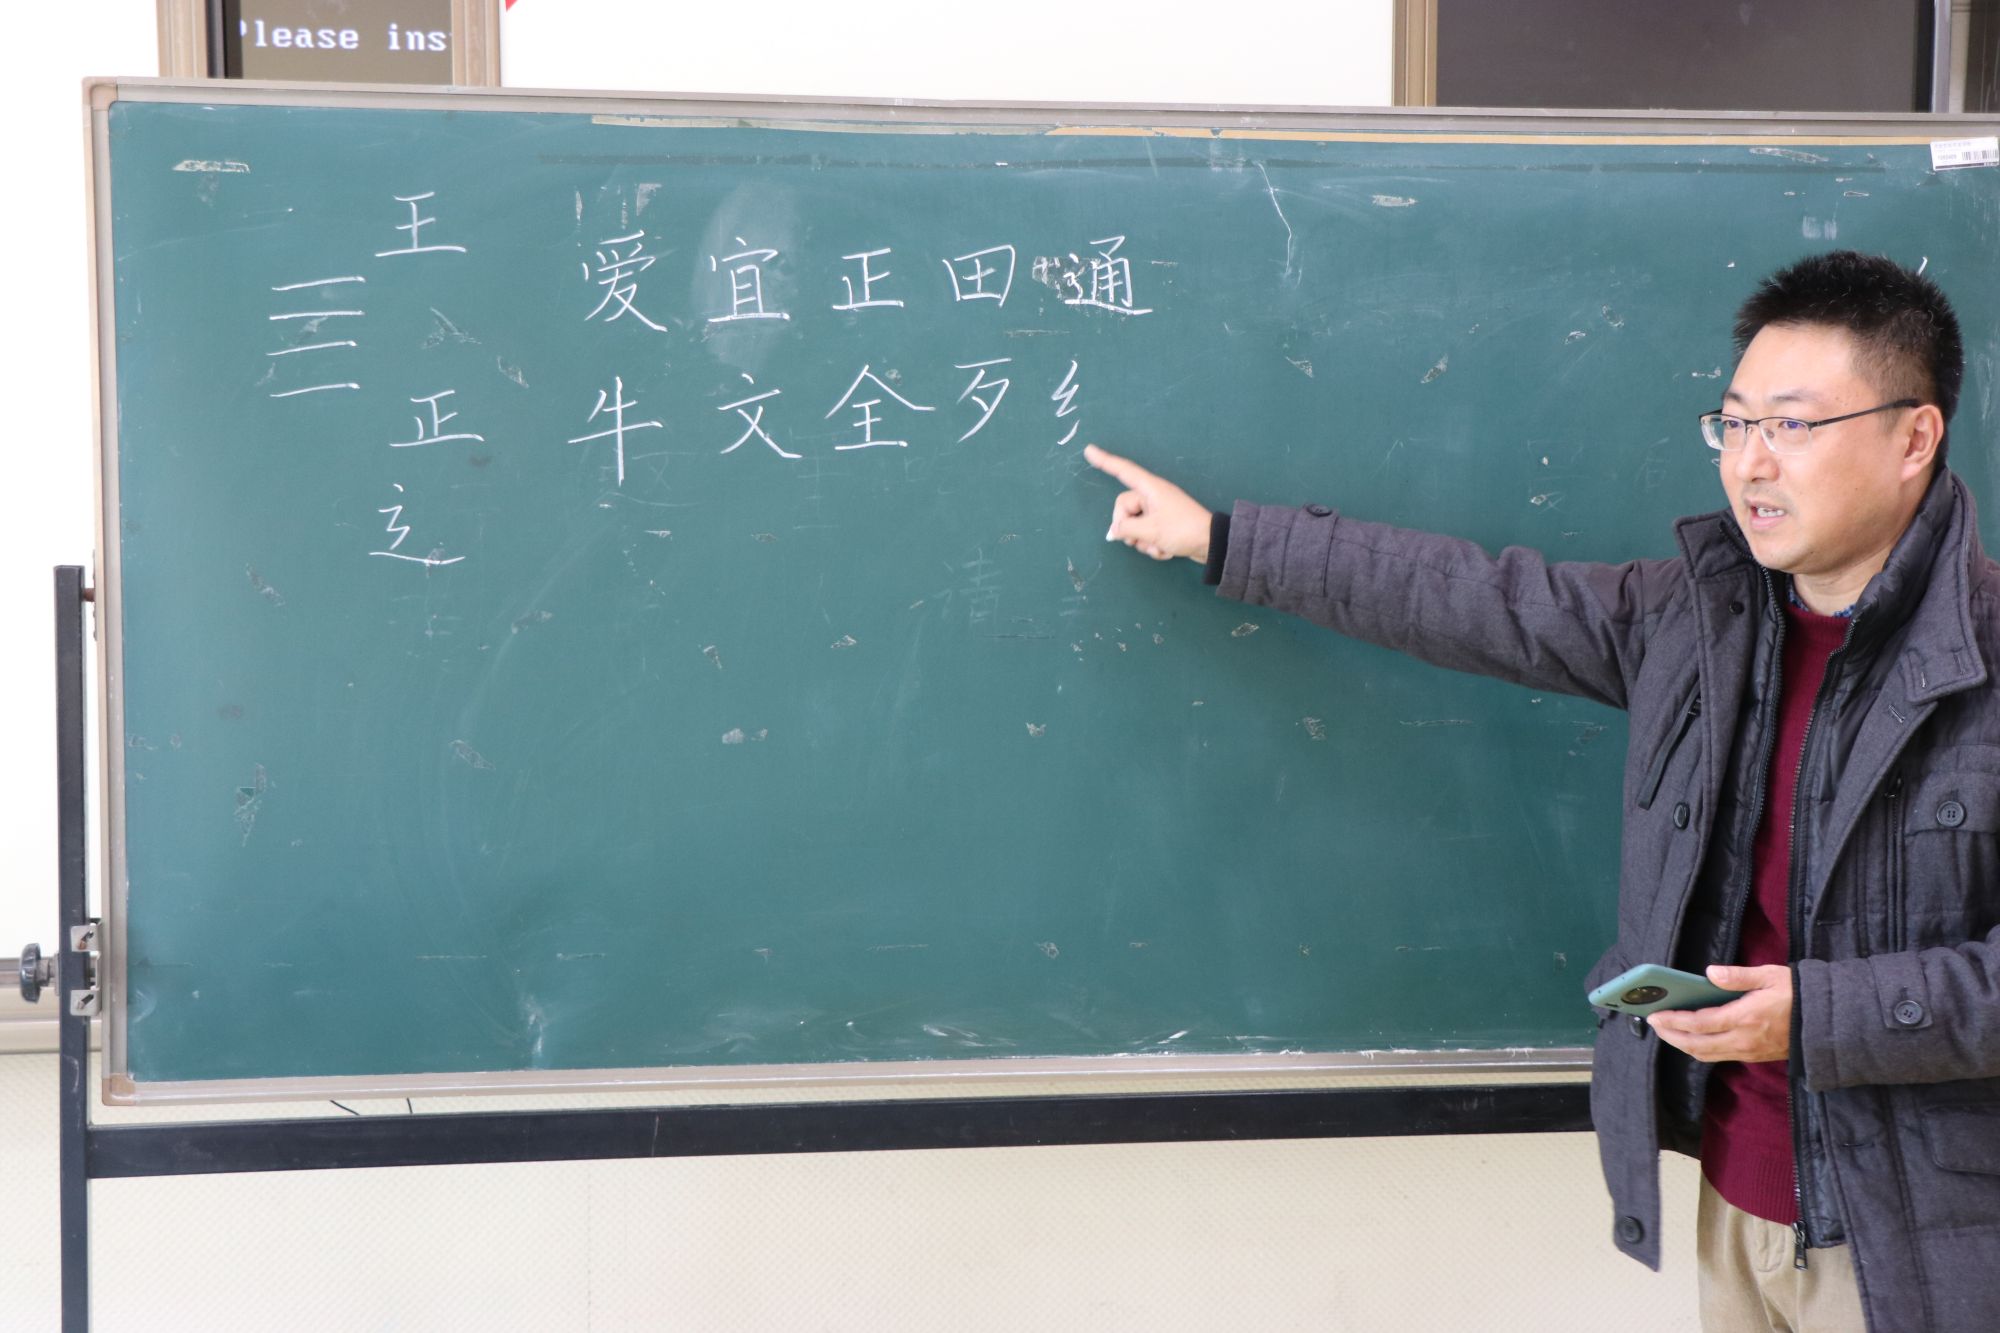 Please ins
王
爱宜正田通
正
牛文全歹纟
辶
请